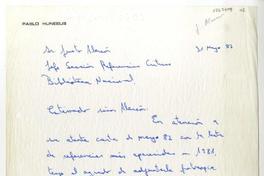 PABLO HUNEEUS
31 Mayo 82
Sr. Justo Alarcón
Jefe Sección Referencias Críticas
Biblioteca Nacional
Estimado señor Alarcón:
En atención a
su atenta carta de mayo 82 con la lista
de referencias más aparecidas en 1981,
tengo el agrado de adjuntarle fotocopia